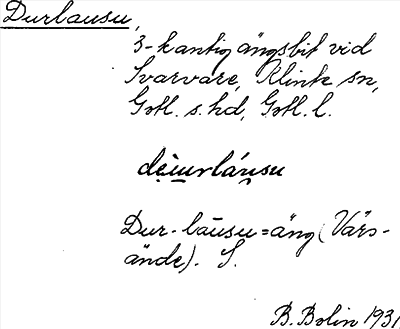 Durlausu,
3-kantig ängsbit vid
Svarvare, Klinte sn,
Gotl. s. hd, Gotl. l.
dèi̯u̯rláu̯su
Dur-lāusu = äng (Värs-
ände). S.
B. Bolin 1931